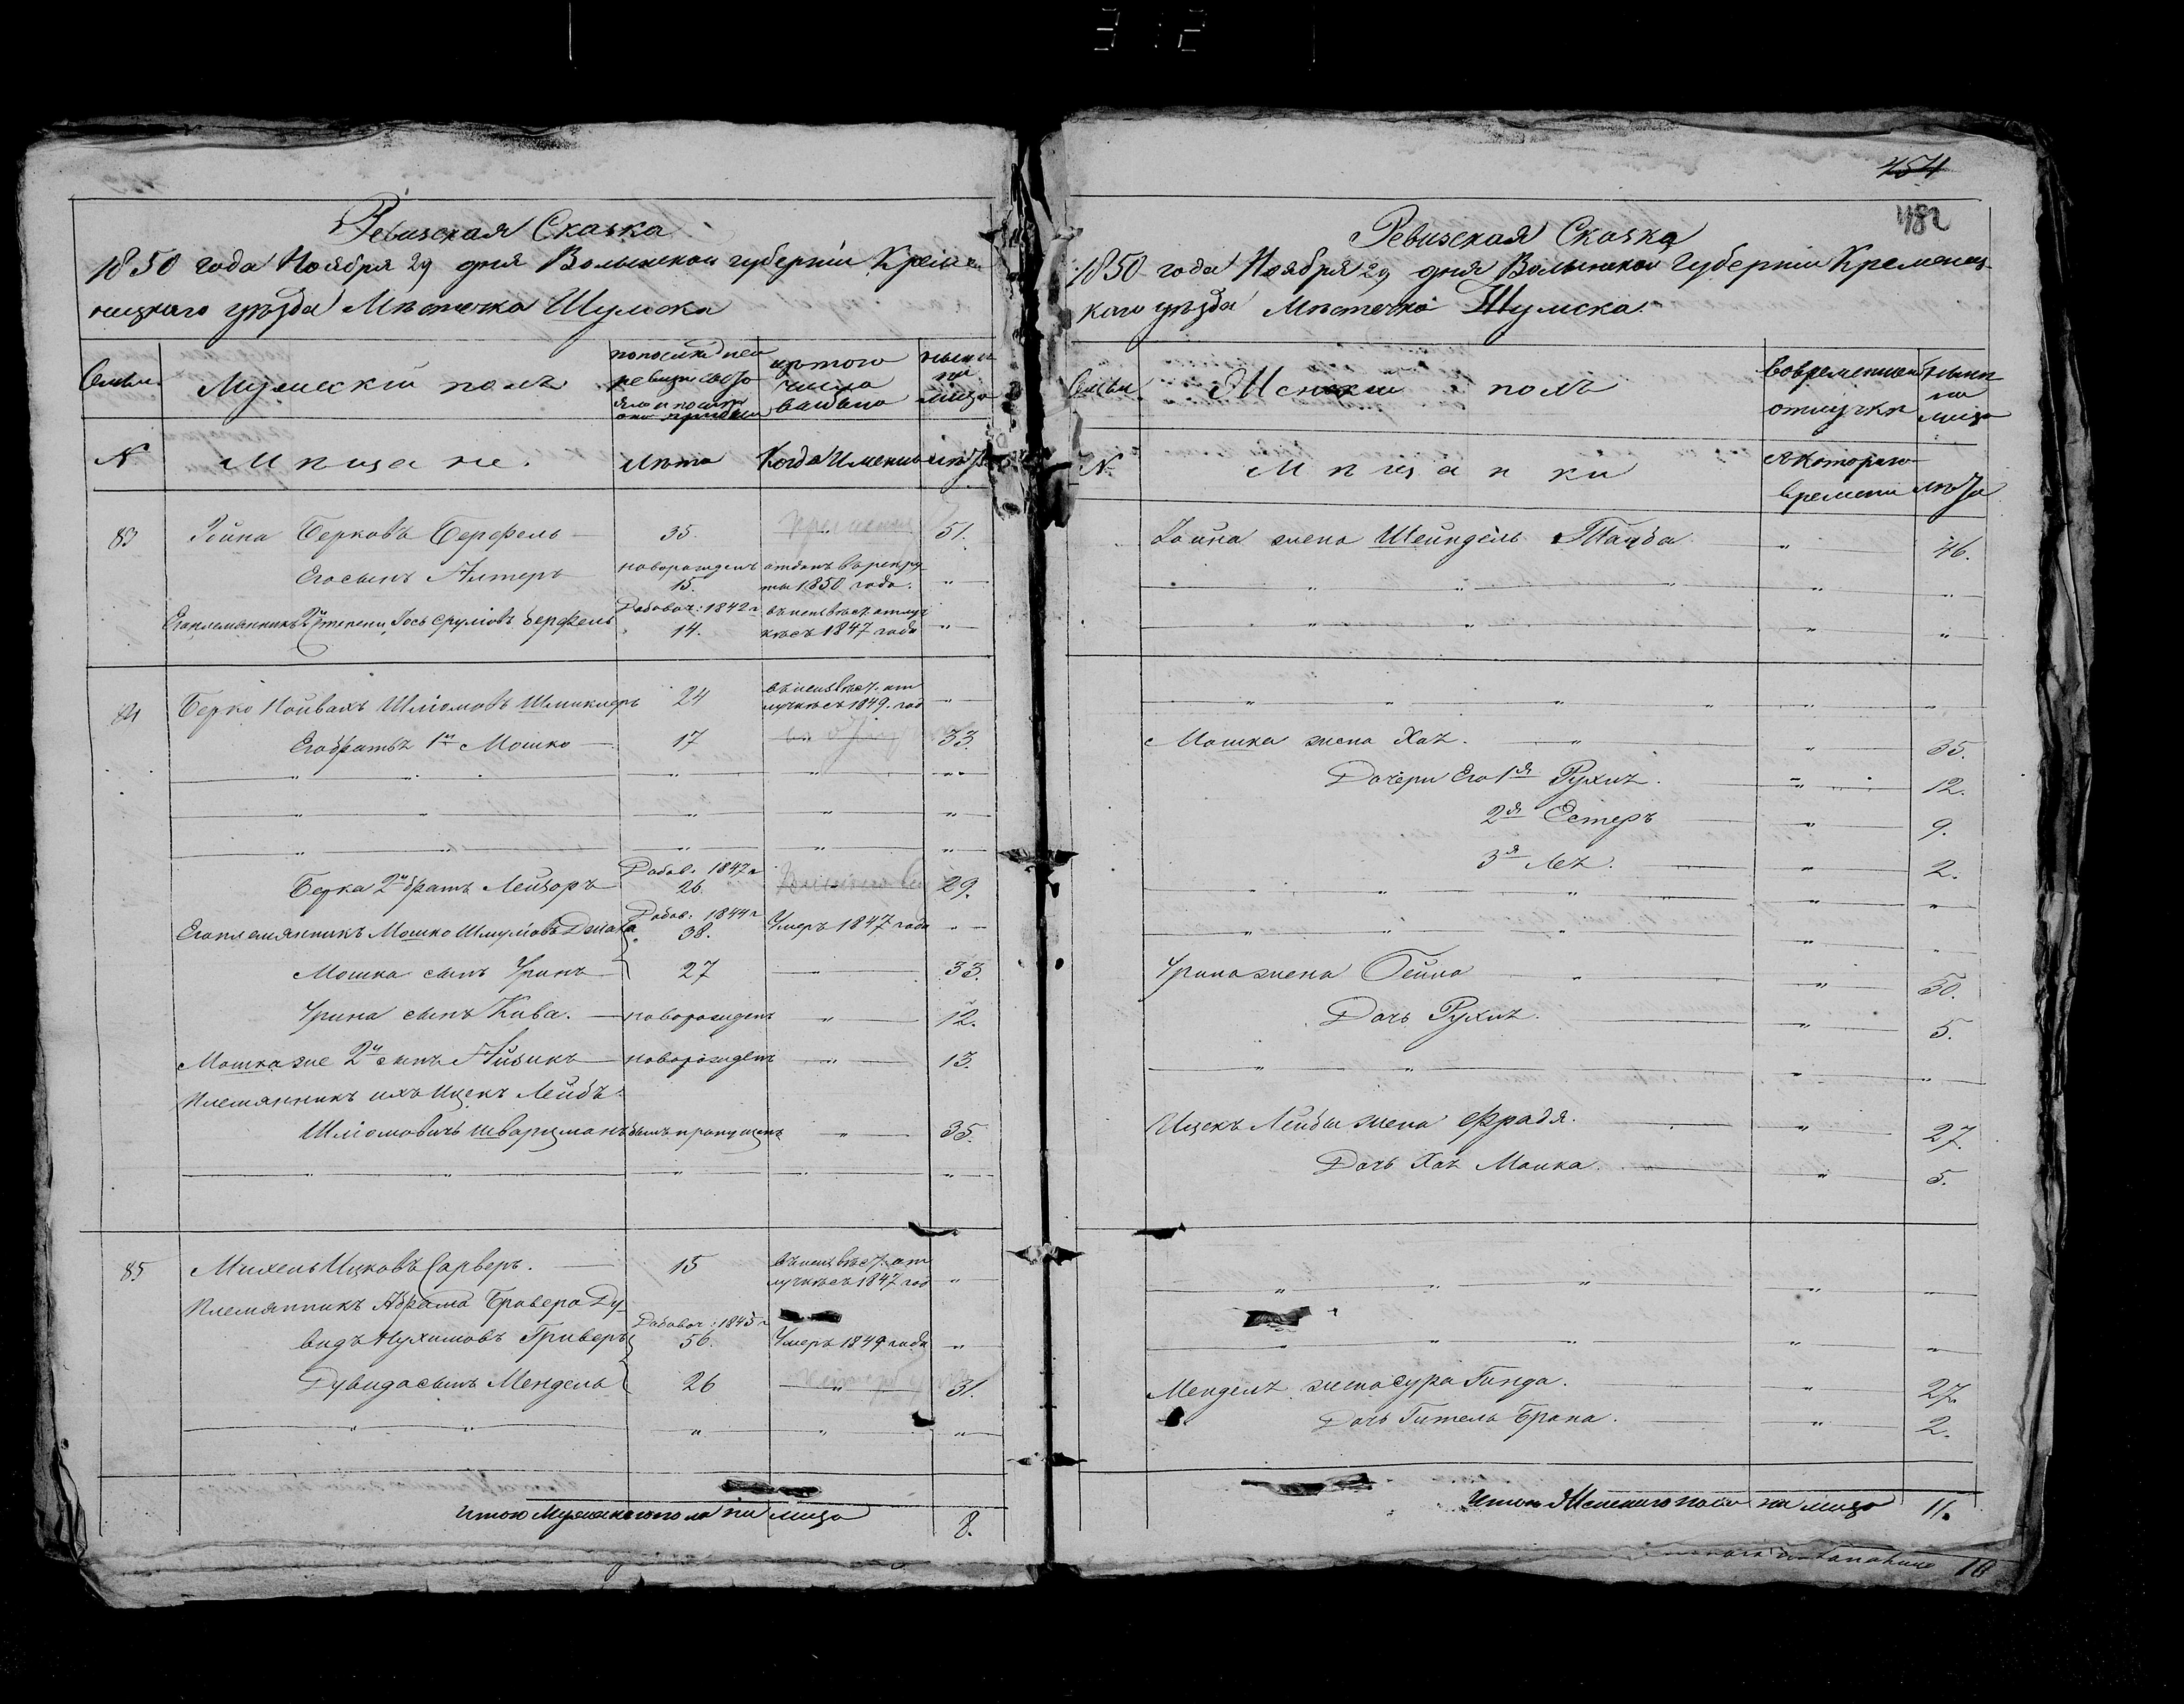 312
Ревизская Сказка
1850 года Ноября 29 дня Волынской губернiи Кремен
нецкаго уѣзда Мѣстечка Шумска
Семьи Мужескiй полъ по последней ревизiи состояло и после оной прибыло изъ того числа выбыло ныне на лицо
№ Мѣщане. лѣта Когда Именно лѣта
83 Iойна Берковъ Берфель 35. 51.
Его сынъ Алтеръ новорожденъ 15. отданъ в рекруты 1850 года. "
Его племянникъ 2й степени Iось Срулiовъ Берфель Добавоч: 1842 г 14. въ неизвѣс. отлучкѣ съ 1847 года "
84 Берко Нойвахъ Шлiомовъ Шпиклеръ 24 въ неизвѣст. отлучкѣ съ 1849. год "
Его братъ 1й Мошко 17 33.
" " " " "
" " " " "
" " " " "
Берка 2й братъ Лейзоръ Добав. 1847 г 26. 29.
Его племянникъ Мошко Шмулiовъ Добав. 1844 г 38. Умеръ 1847 года "
Мошка сынъ Уринъ 27 33.
Урина сынъ Кива. новорожденъ " 12.
Мошка же 2й сынъ Айзикъ новорожденъ " 13.
Племянникъ ихъ Ицекъ Лейбъ
Шлiомовичъ Шварцманъ былъ пропущенъ " 35.
" " " " "
85 Михель Ицковъ Сарверъ. 15 въ неизвѣст. отлучкѣ съ 1847 год "
Племянникъ Абрама Гривера Ду-
видъ Нухимовъ Гриверъ Добавоч: 1845 г 56. Умеръ 1849 года "
Дувида сынъ Мендель 26 31.
" " " " "
Итого Мужескаго пола на лицо 8.
454
482
Ревизская Сказка
1850 года Ноября 29 дня Волынской Губернiи Кременец-
каго уѣзда Мѣстечка Шумска.
Семьи Женскiй полъ Во временной отлучкѣ Ныне на лицо
№ Мѣщанки Съ котораго времени лѣта
Iойна жена Шейндель Тауба " 46.
" " " " "
" " " "
" " " " " "
Мошка жена Хая. " " 35.
Дочери Его 1я Рухля. " 12.
2я Естеръ " 9.
3я Лея. " 2.
" " " " "
" " " " "
Урина жена Бейла " " 30.
Дочь Рухля. " 5.
" " " "
Ицекъ Лейбы жена Фрадя. " 27.
Дочь Хая Малка. " 5.
" " " "
" " " "
Менделя жена Сура Гинда. " 27.
Дочь Гитель Брана. " 2.
Итого Женскаго пола на лицо 11.